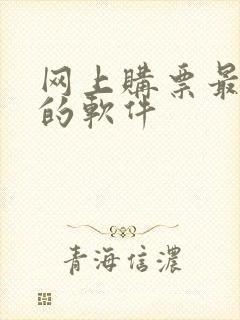 网上購票最
的軟件
青海信濃